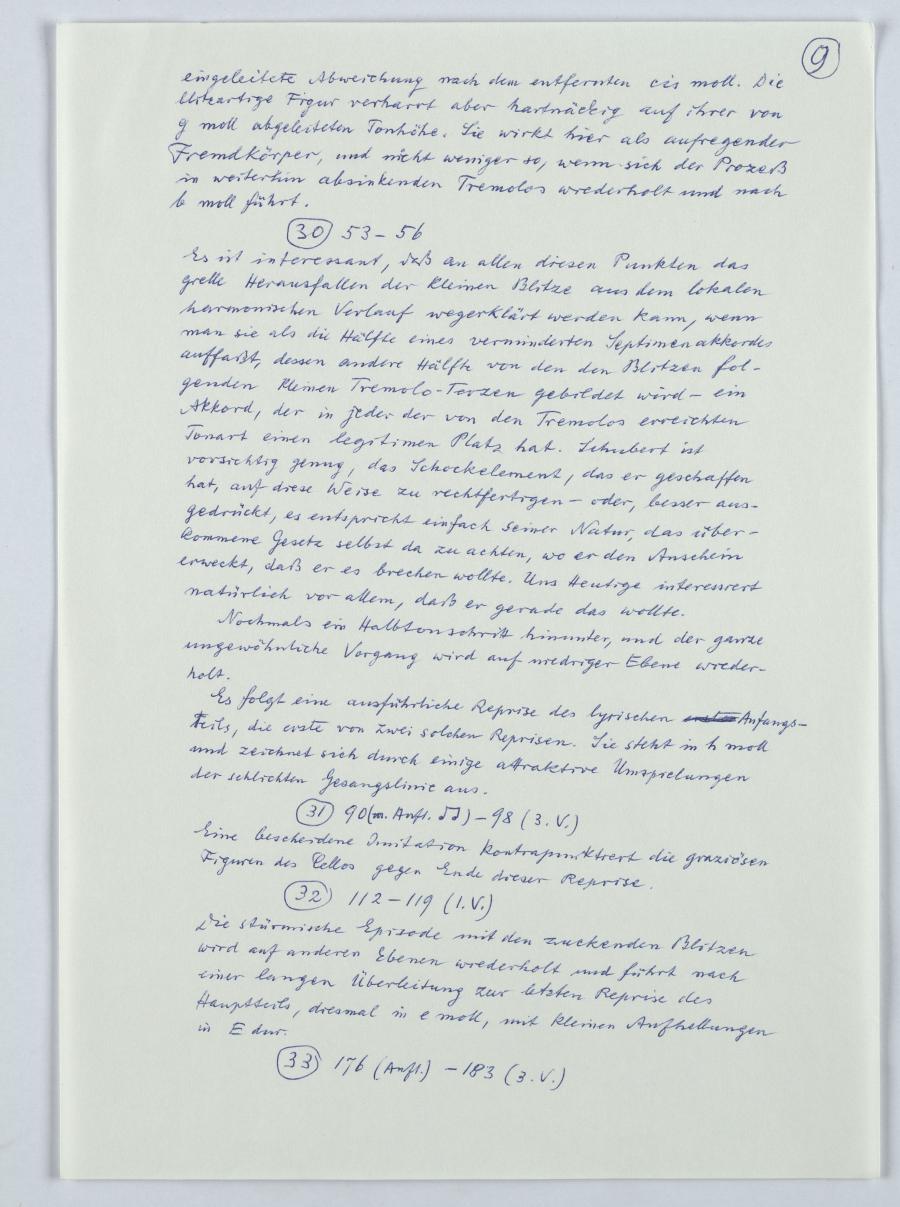 9
eingeleitete Abweichung nach dem entfernten cis moll. Die
blitzartige Figur verharrt aber hartnäckig auf ihrer von
g moll abgeleiteten Tonhöhe. Sie wirkt hier als aufregender
Fremdkörper, und nicht weniger so, wenn sich der Prozeß
in weiterhin absinkenden Tremolos wiederholt und nach
b moll führt.
30 53–56
Es ist interessant, daß an allen diesen Punkten das
grelle Herausfallen der kleinen Blitze aus dem lokalen
harmonischen Verlauf wegerklärt werden kann, wenn
man sie als die Hälfte eines verminderten Septimenakkordes
auffaßt, dessen andere Hälfte von den den Blitzen fol-
genden kleinen Tremolo-Terzen gebildet wird – ein
Akkord, der in jeder der von den Tremolos erreichten
Tonart einen legitimen Platz hat. Schubert ist
vorsichtig genug, das Schockelement, das er geschaffen
hat, auf diese Weise zu rechtfertigen – oder, besser aus-
gedrückt, es entspricht einfach seiner Natur, das über-
kommene Gesetz selbst da zu achten, wo er den Anschein
erweckt, daß er es brechen wollte. Uns Heutige interessiert
natürlich vor allem, daß er gerade das wollte.
Nochmals ein Halbtonschritt hinunter, und der ganze
ungewöhnliche Vorgang wird auf niedriger Ebene wieder-
holt.
Es folgt eine ausführliche Reprise des lyrischen Anfangs-
teils, die erste von zwei solchen Reprisen. Sie steht in h moll
und zeichnet sich durch einige attraktive Umspielungen
der schlichten Gesangslinie aus.
31 90 (m. Auft. ♫) – 98 (3. V.)
Eine bescheidene Imitation kontrapunktiert die graziösen
Figuren des Cellos gegen Ende dieser Reprise.
32 112–119 (1. V.)
Die stürmische Episode mit den zuckenden Blitzen
wird auf anderen Ebenen wiederholt und führt nach
einer langen Überleitung zur letzten Reprise des
Hauptteils, diesmal in e moll, mit kleinen Aufhellungen
in E dur.
33 176 (Auft.) – 183 (3. V.)